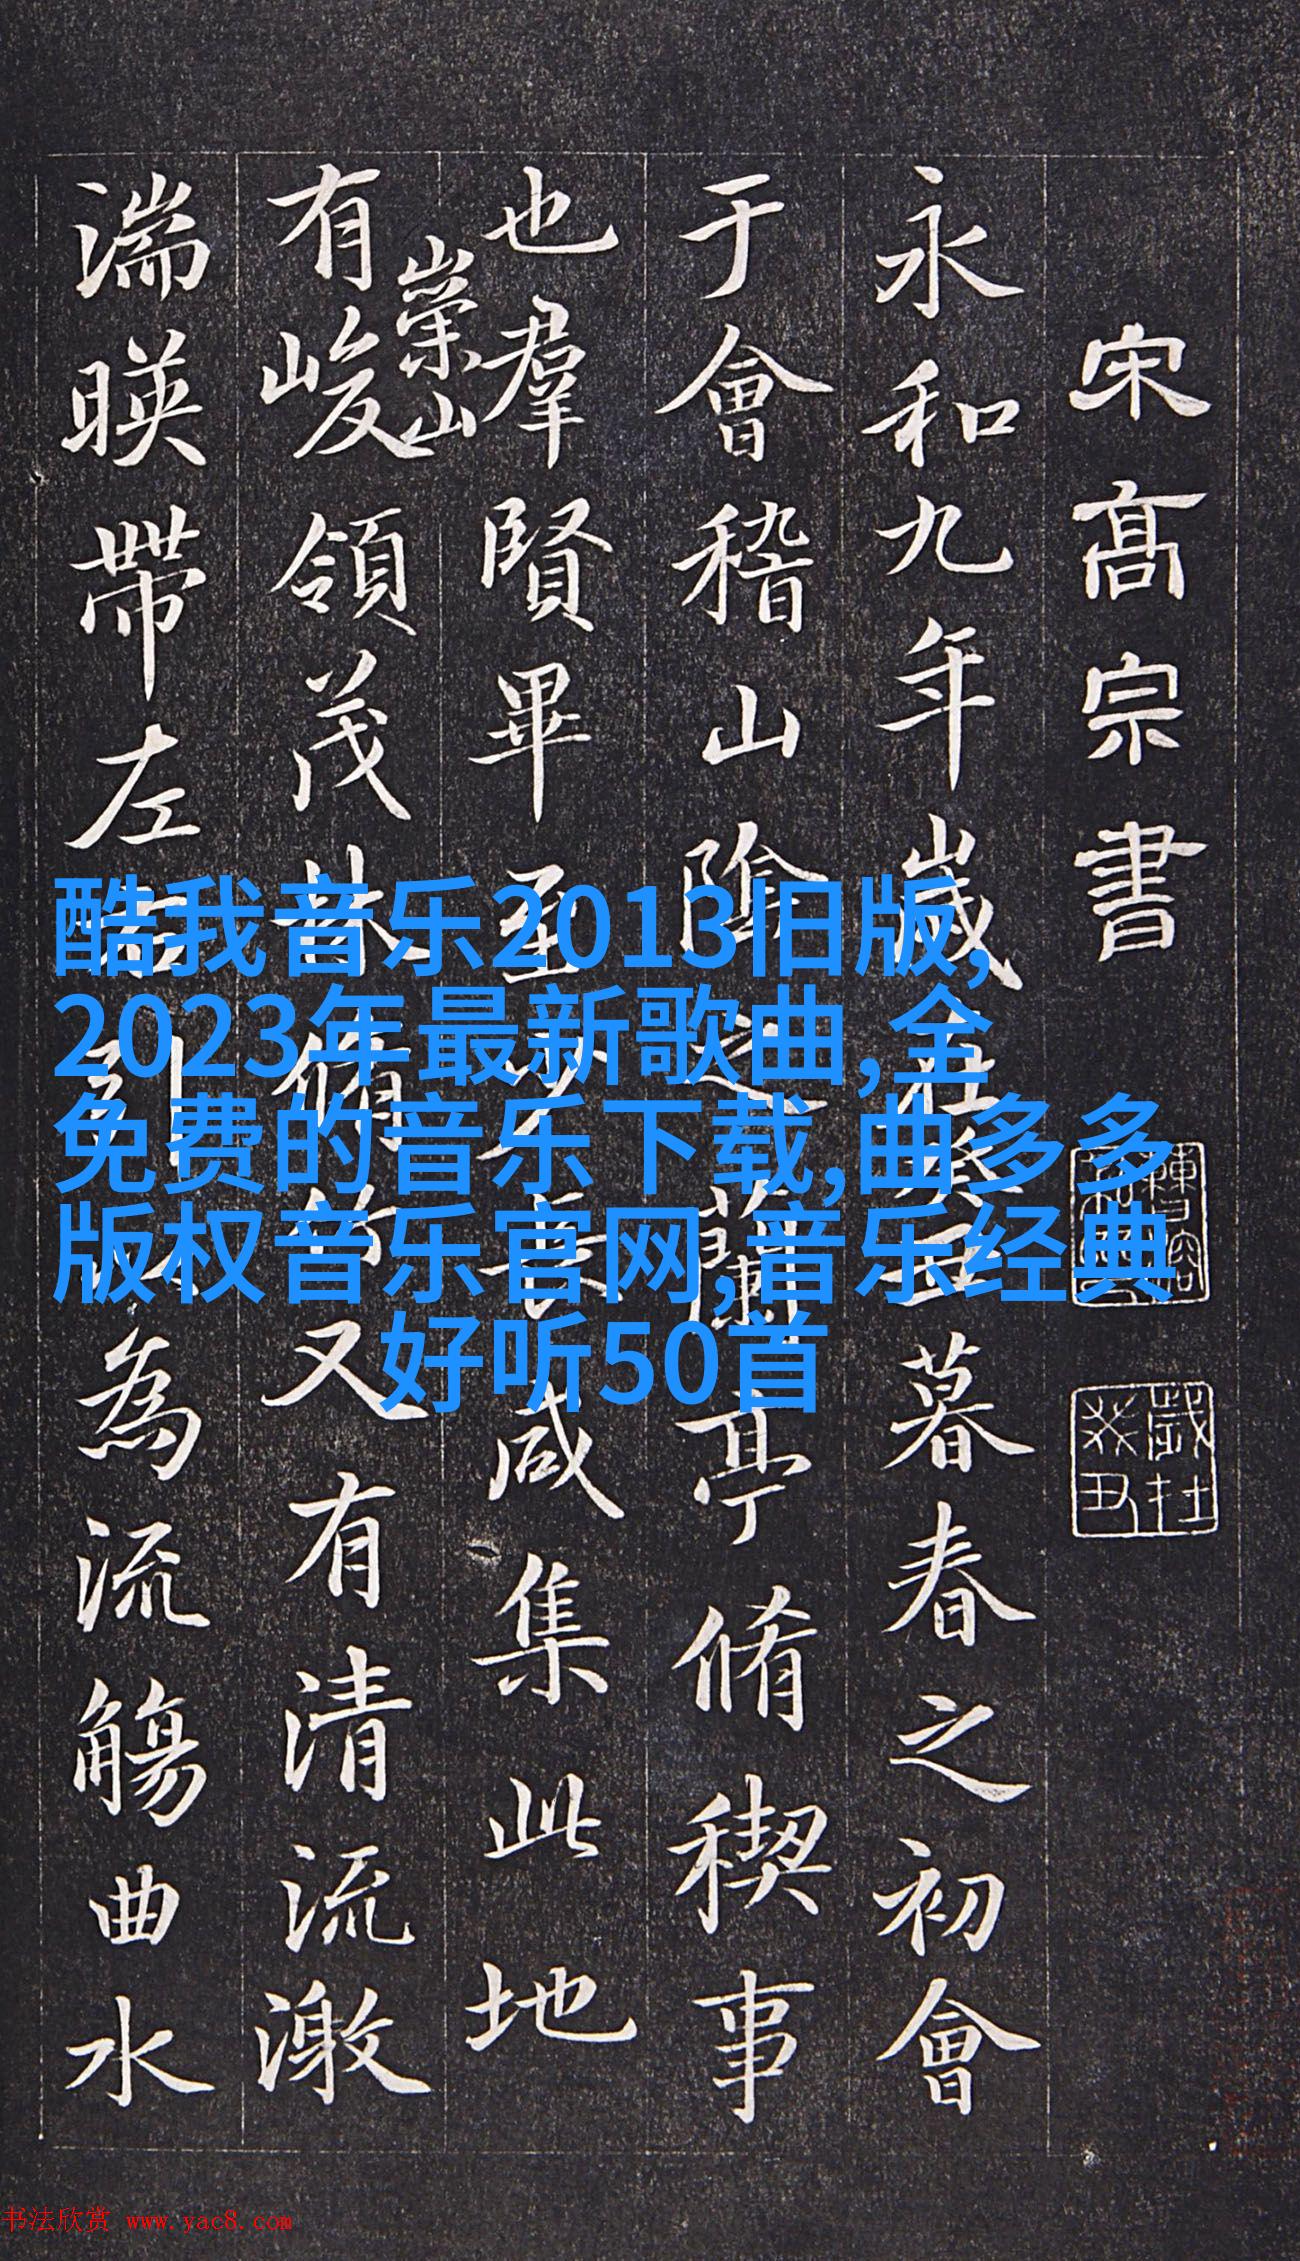 宋髙宗書
歲在
癸丑
永和九年歲在癸丑暮春之初會
于會稽山陰之蘭亭脩稧事
也羣賢畢至少長咸集此地
崇山
有峻領茂林脩竹又有清流激
湍暎帶左右引以為流觴曲水
酷我音乐2013旧版,
2023年最新歌曲,全
免费的音乐下载,曲多多
版权音乐官网,音乐经典
好听50首
书法欣赏 www.yac8.com